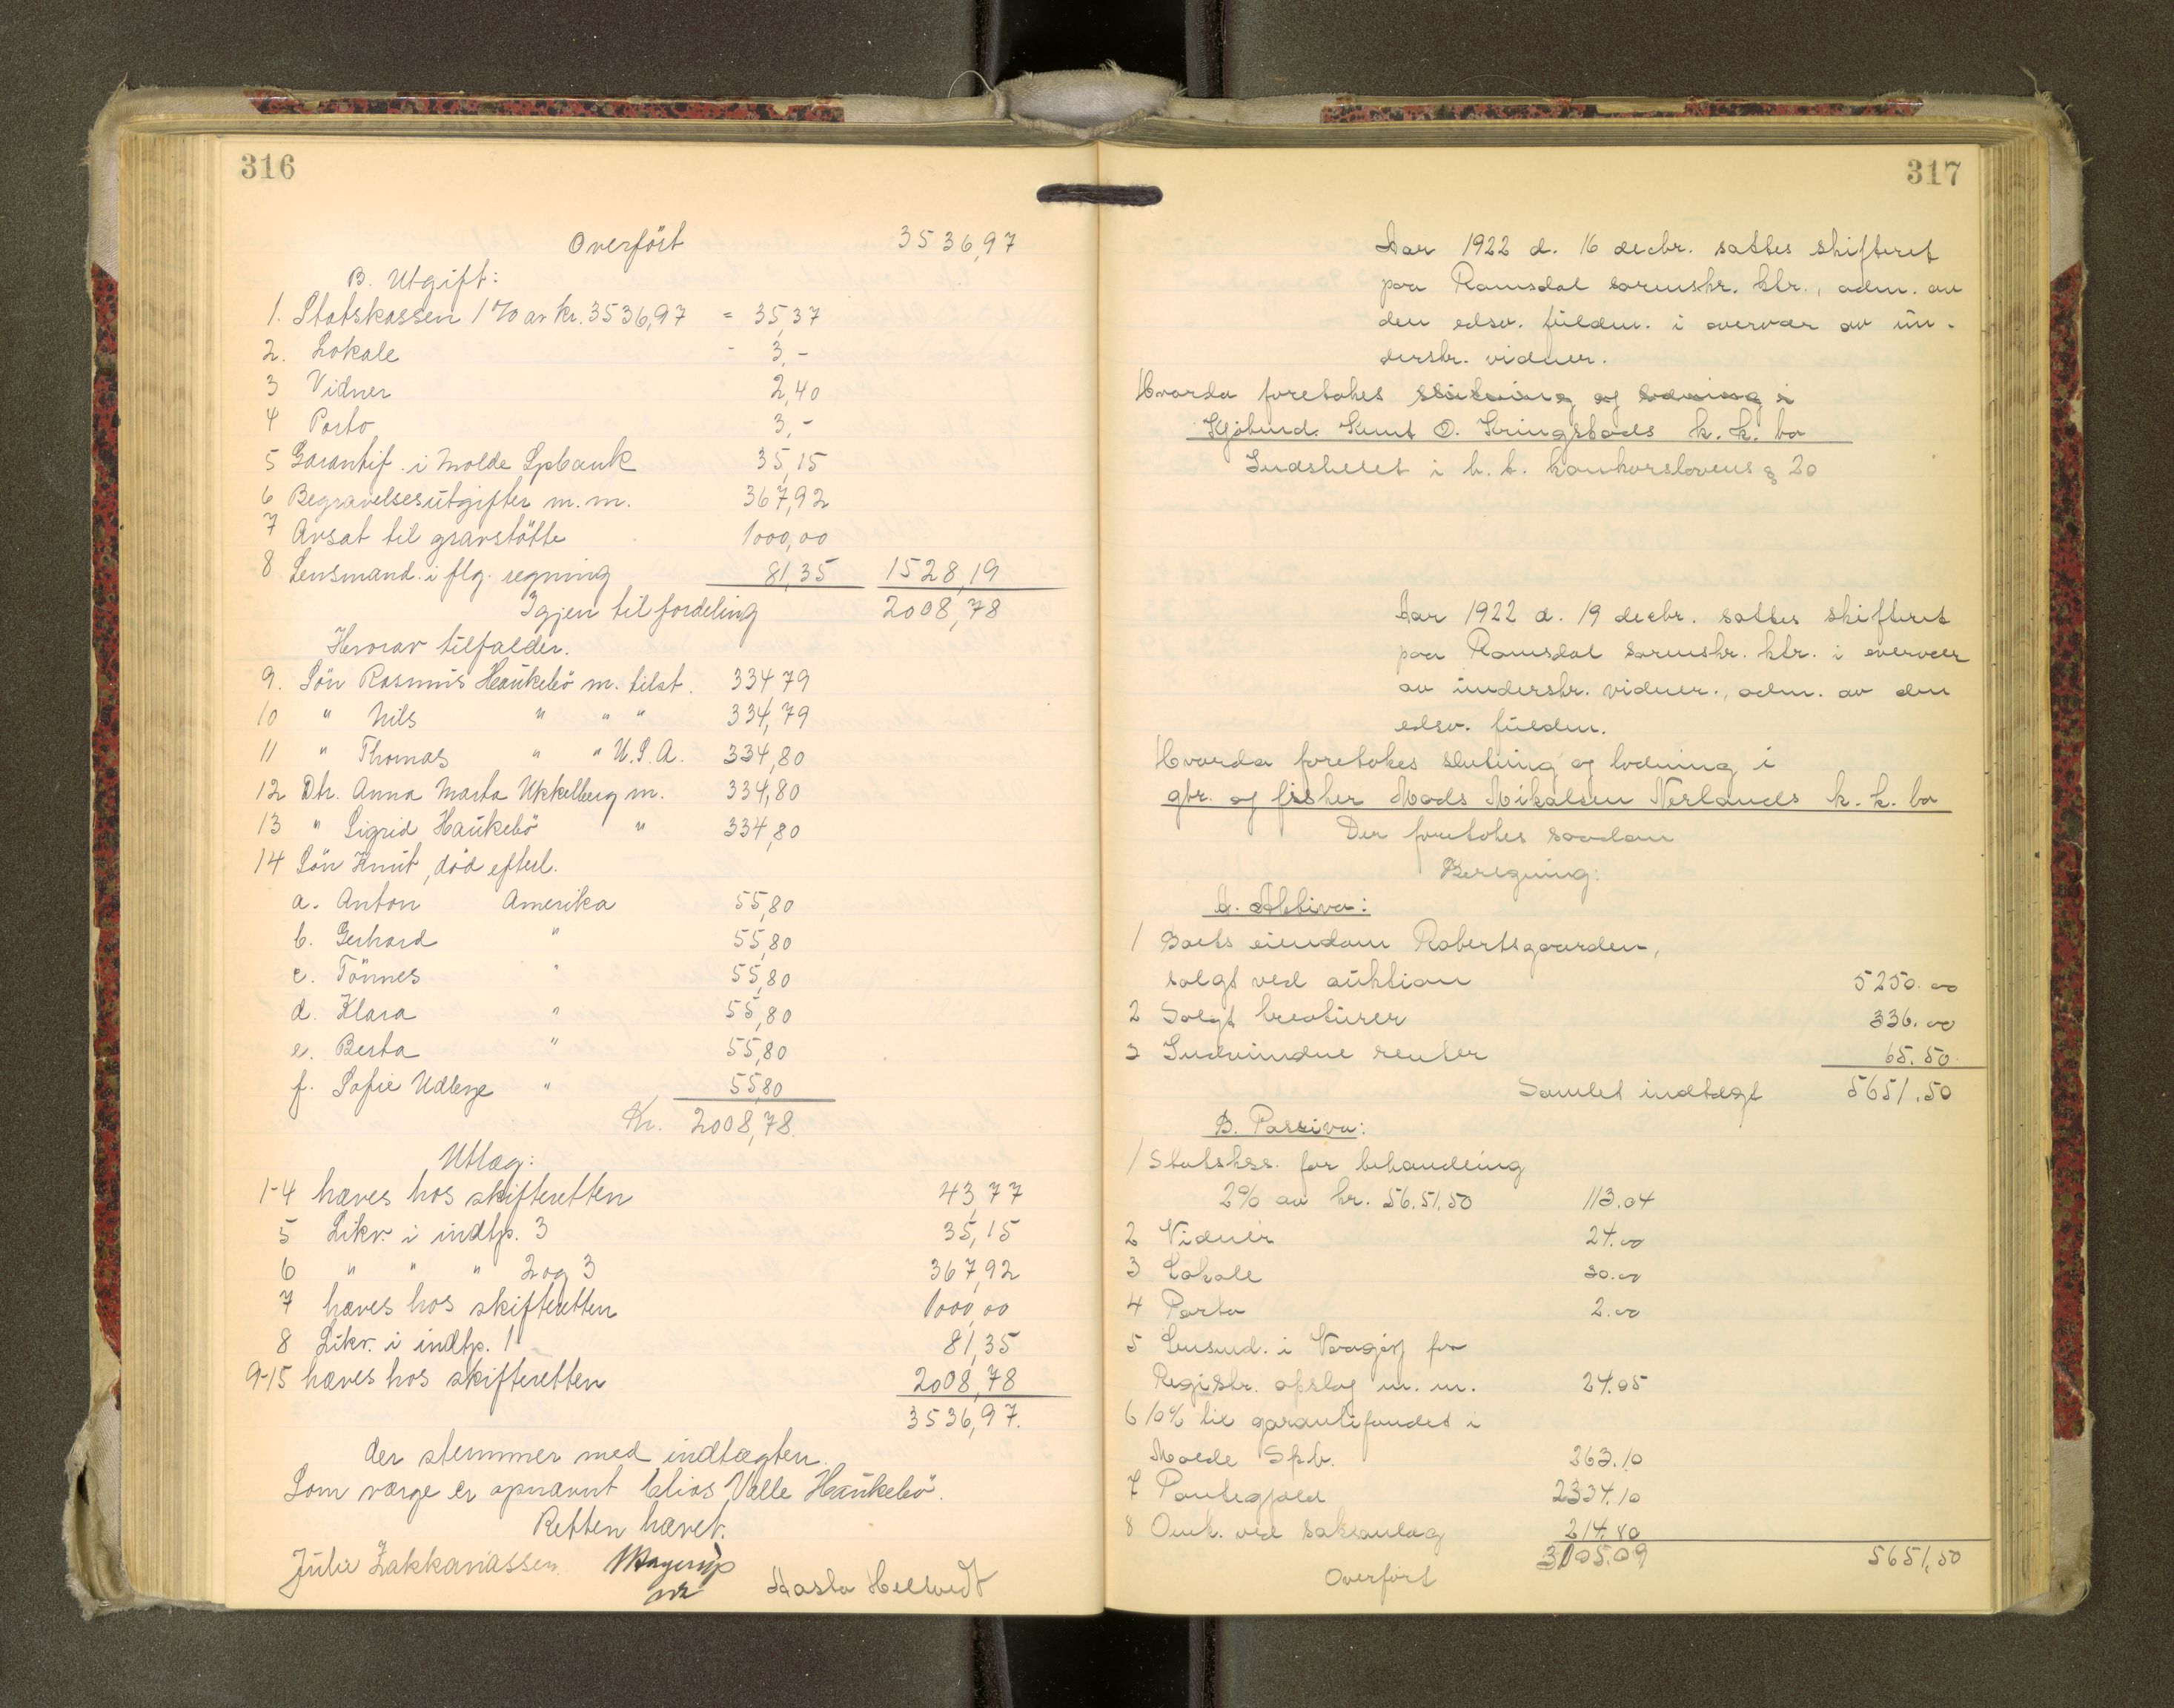 316
Overført 3536,97
B. Utgift:
1. Statskassen 1% av kr. 3536,97 = 35,37
2. Lokale - 3,-
3 Vidner 2,40
4 Porto 3,-
5 Garantif. i Molde Spbank 35,15
6 Begravelsesutgifter m.m. 367,92
7 Avsat til gravstøtte 1000,00
8 Lensmand. i flg. regning 81,35 1528,19
Igjen til fordeling 2008,78
Herav tilfalder.
9. Søn Rasmus Haukebø m. tilst. 334 79
10 " Nils " " " 334,79
11 " Thomas " " U.S.A. 334,80
12 Dtr. Anna Marta Ukkelberg m. 334,80
13 " Sigrid Haukebø " 334,80
14 Søn Knut, død efterl.
a. Anton Amerika 55,80
b. Gerhard " 55,80
c. Tönnes " 55,80
d. Klara " 55,80
e. Berta " 55,80
f. Sofie " 55,80
Kr. 2008,78.
Utlæg:
1-4 hæves hos skifteretten 43,77
5 Likv. i indtp. 3 35,15
6 " " " 2 og 3 367,92
7 hæves hos skifteretten 1000,00
8 Likv. i indtp. 1 81,35
9-15 hæves hos skifteretten 2008,78
3536,97.
der stemmer med indtægten.
Som værge er opnævnt Elias Valle Haukebø.
Retten hævet.
Julie Zakkariassen. Hasla Heltvedt
317
Aar 1922 d. 16 decbr. sattes skifteret
paa Romsdal sorenskr. ktr., adm. av
den edsv. fuldm. i overvær av un-
derskr. vidner.
Hvorda foretokes slutning og lodning i
Kjøbmd. Knut O. Kringstads k. k. bo
Indstillet i h. t. konkurslovens § 20
Aar 1922 d. 19 decbr. sattes skifteret
paa Romsdal sorenskr. ktr. i overvær
av underskr. vidner., adm. av den
edsv. fuldm.
Hvorda foretokes slutning og lodning i
gbr. og fisker Mads Mikalsen Nerlands k. k. bo
Der foretokes saadan
Beregning:
A. Aktiva:
1 Boets eiendom Robertsgaarden,
solgt ved auktion 5250.00
2 Solgt kreaturer 336.00
3 Indvundne renter 65.50
Samlet indtægt 5651.50
B. Passiva:
1 Statsks. for behandling
2% av kr. 56.51.50 113.04
2 Vidner 24.00
3 Lokale 30.00
4 Porto 2.00
5 Lensmd. i for
Registr. opslag m. m. 24.05
6 10% til garantifondet i
Molde Spb. 363.10
7 Pantegjæld 2334.10
8 Omk. ved saksanlæg 214.80
3105.09 5651,50
Overført